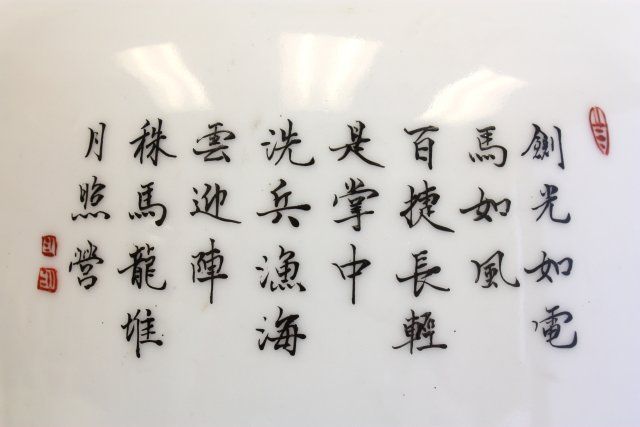 劍光如電
馬如風
百捷長輕
是掌中
洗兵漁海
雲迎陣
秣馬龍堆
月照營